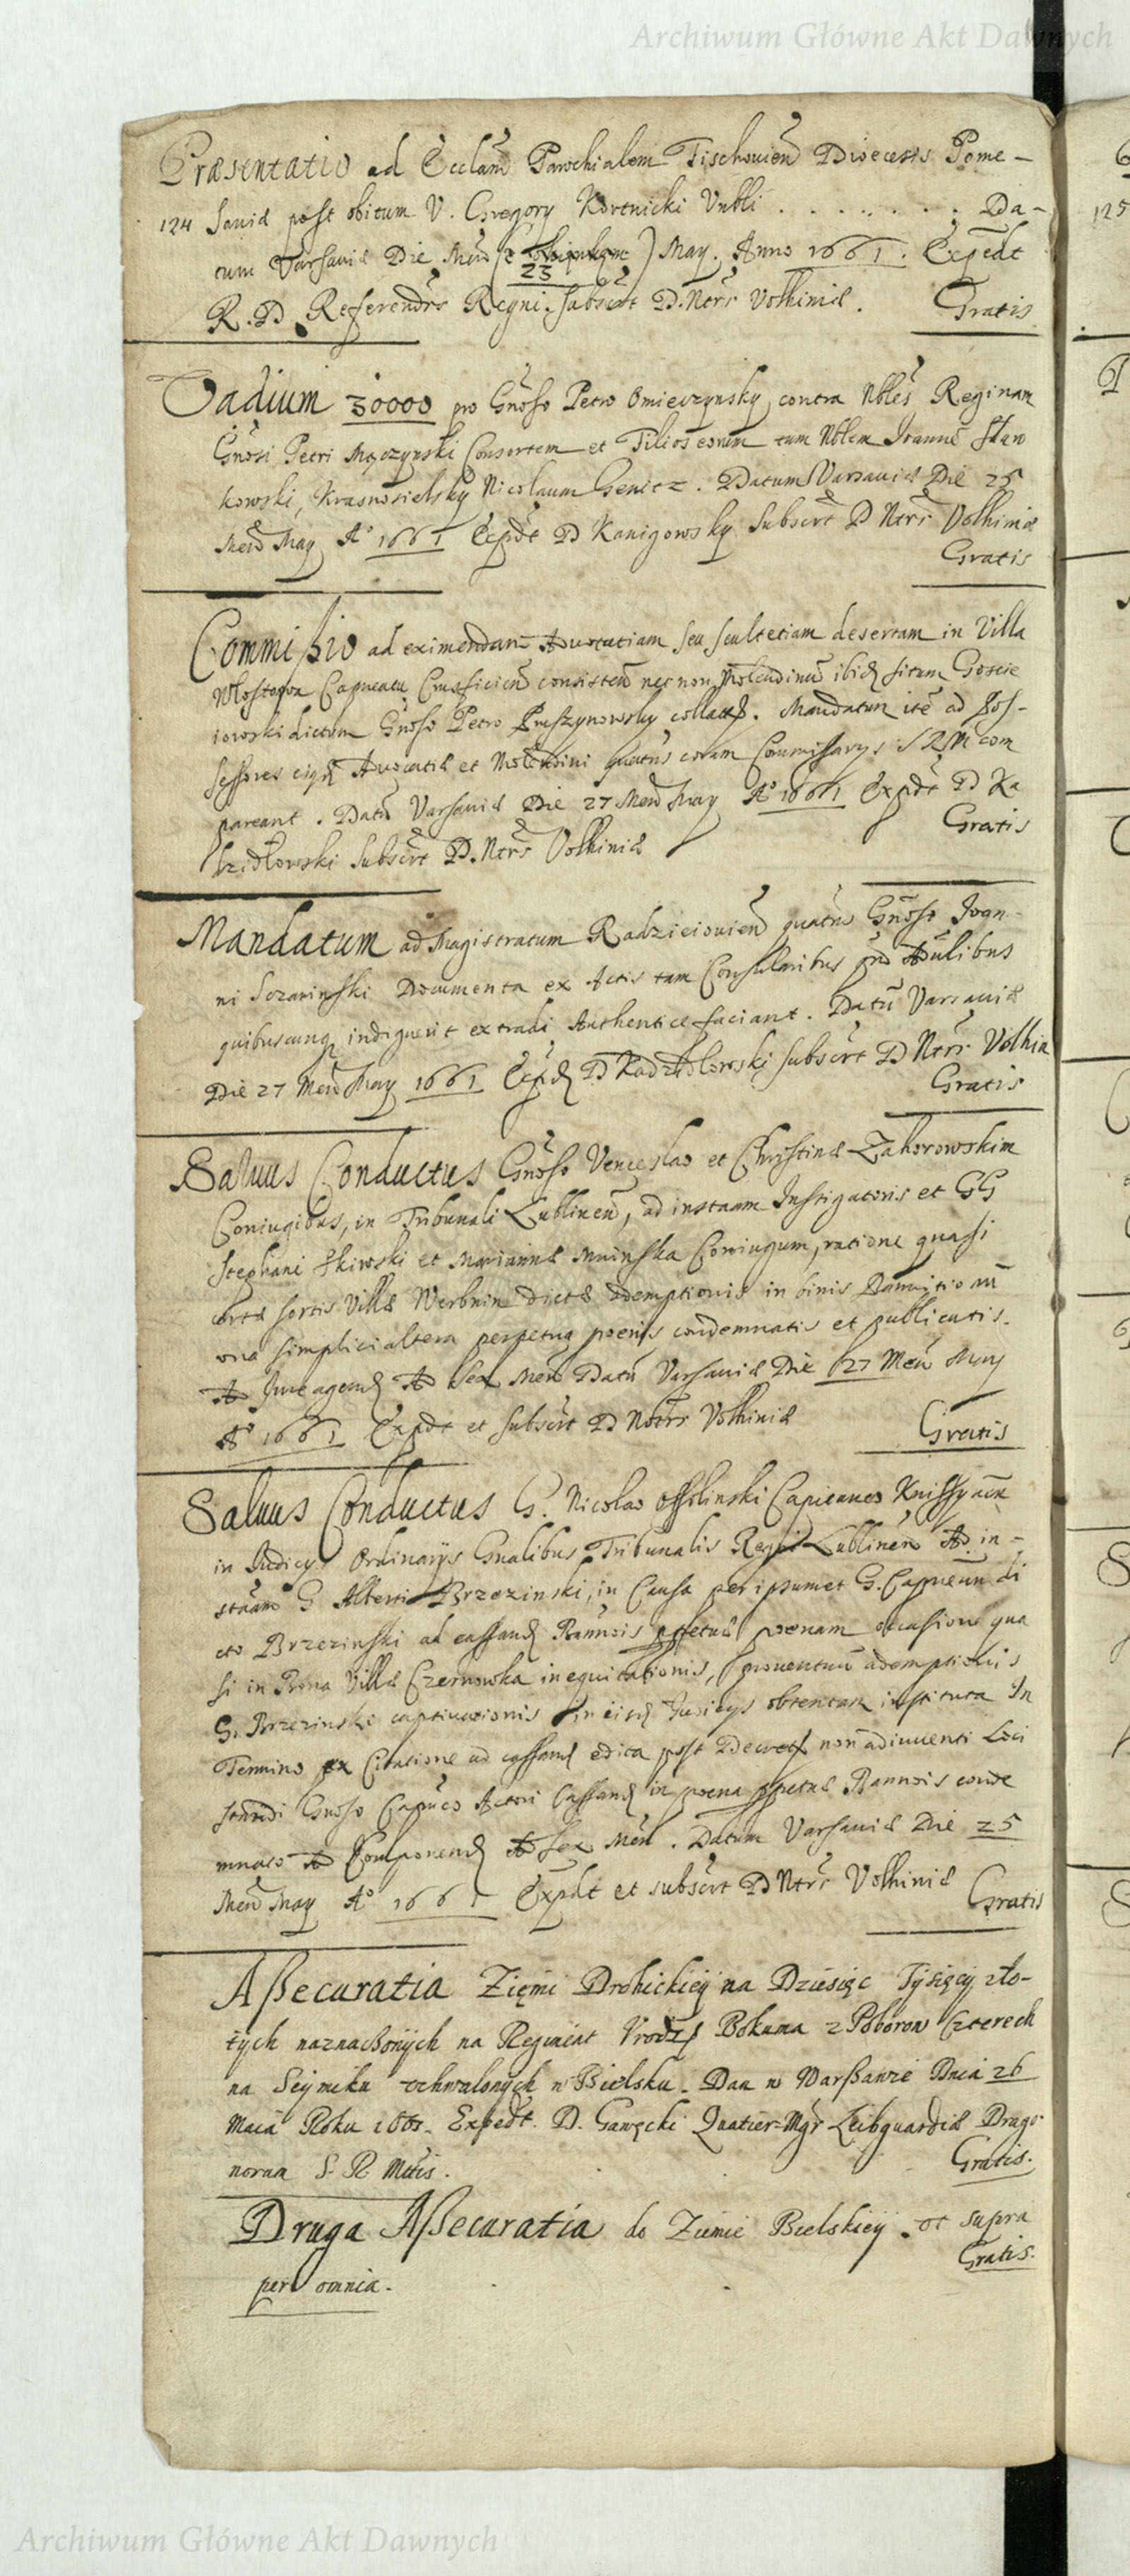 Archiwum Główne Akt Dawnych
Præsentatio ad Eccläm Parochialem Tischouien̄ Diœcesis Pome-
124 Saniæ post obitum V. Gregory Kortnicki Vnbli . . . . . . . . Da-
tum Varsauiæ Die Men̄ 23 May. Anno 1661. Expedt
R. D Referendrs Regni. subscrt D. Ntrs Volhiniæ. Gratis
Vadium 30000 pro Gnoso Petro Omieczynsky contra Nbles Reginam
Gnosi Petri Mączynski Consortem et Filios eorum tum Nblem Joannē Stan
kowski, Krasnosielsky Nicolaum Genicz. Datum Varsauiæ Die 25
Men̄ May Ao 1661 Expdt D Kanigowsky Subscrt D Ntrs Volhiniæ
Gratis
Commissio ad eximendam Aduocatiam seu scultetiam desertam in Villa
consisten̄ nec non Molendinū ibid sitam Goscie
iowski dictum Gnoso Petro Pruszynowsky collatæ. Mandatum itē ad Pos-
sessores eiqd Aduocatiæ et Molendini quatns coram Commissarys S R M com
pareant. Datū Varsauiæ Die 27 Men̄ May Ao 1661 Expdt D Ka
dzidłowski Subscrt D. Ntrs Volhiniæ Gratis
Mandatum ad Magistratum Radzieiouien̄ quatns Gnoso Joan-
ni Documenta ex Actis tam Consularibus
quibuscunq indiguerit extradi Authenticè faciant. Datū Varsauiæ
Die 27 Men̄ May 1661 Expd D Kadzidlowski subscrt D Ntrs Volhin
Gratis
Saluus Conductus Gnoso Venceslao et Christinæ Zahorowskim
Coniugibus, in Tribunali Lublinen̄, ad instaam Instigatoris et GG
Stephani et Mariannæ Mninska Coniugum, ratione quasi
certæ sortis Villæ Werbnin dictæ ademptionis in binis
una simplici altera perpetua poenis condemnatis et publicatis.
Ad Jure agend Ad sex Men̄ Datū Varsauiæ Die 27 Men̄ May
Ao 1661 Expdt et subscrt D Notrs Volhiniæ Gratis
Saluus Conductus G. Nicolao Ossolinski Capitaneo Knissynen
in Judicys Ordinarys Gnalibus Tribunalis Regni Lublinen̄ Ad in-
staam G Alberti Brzezinski, in Causa per ipsummet G. Capneum di
cto Brzezinski ad cassand Bannois pptuæ poenam occasione qua
si in Bona Villæ Czernowka inequitationis, prouentuū ademptionis
G. Brzezinski captiuationis in eisd Judicys obtentam instituta In
Termino ex Citatione ad cassand edita post Decret non adinuenti Loci
standi Gnoso Capneo Actori Cassand in poena pptuæ Bannois conde
mnato Ad Componend Ad sex Men̄. Datum Varsauiæ Die 25
Men̄ May Ao 1661 Expdt et subscrt D Ntrs Volhiniæ Gratis
Assecuratia Ziemi Drohickiey na Dziesięc Tysięcy zło-
tych naznaczonych na Regiment Vrodz Bokuma z Poborow Czterech
na Seymiku vchwalonych w Bielsku. Dan w Warszawie Dnia 26
Maia Roku 1661. Expedt. D. Gawęcki Quatier-Mgr Leibguardiæ Drago-
norum S. R Mttis. Gratis.
Druga Assecuratia do Ziemie Bielskiey. vt supra
per omnia. Gratis.
Archiwum Główne Akt Dawnych